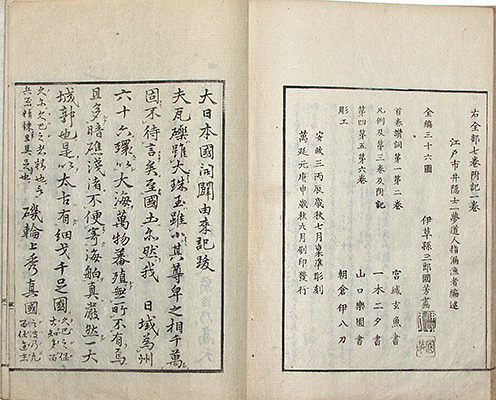 右全部七卷附記一卷
江戸市井隱士一夢道人指漏漁者編述
全編三十六圖 伊草孫三郎國芳畫
首卷讃詞第一第二卷 宮城玄魚書
凡例及第三卷及附記 一木二夕書
第四第五第六卷 山口樂圃書
彫工 朝倉伊八刀
安政三丙辰歳秋七月稟準彫刻
萬延元庚申歳秋六月刷印發行
大日本國開闢由来記跋
夫瓦礫雖大珠玉雖小其尊卑之相千萬
固不待言矣至國土亦然我 日域為州
六十六環以大海萬物蕃殖無所不有焉
且多暗礁淺渚不便寄海舶真嚴然一大
城郭也是以太古有細戈千足國
磯輪上秀真國